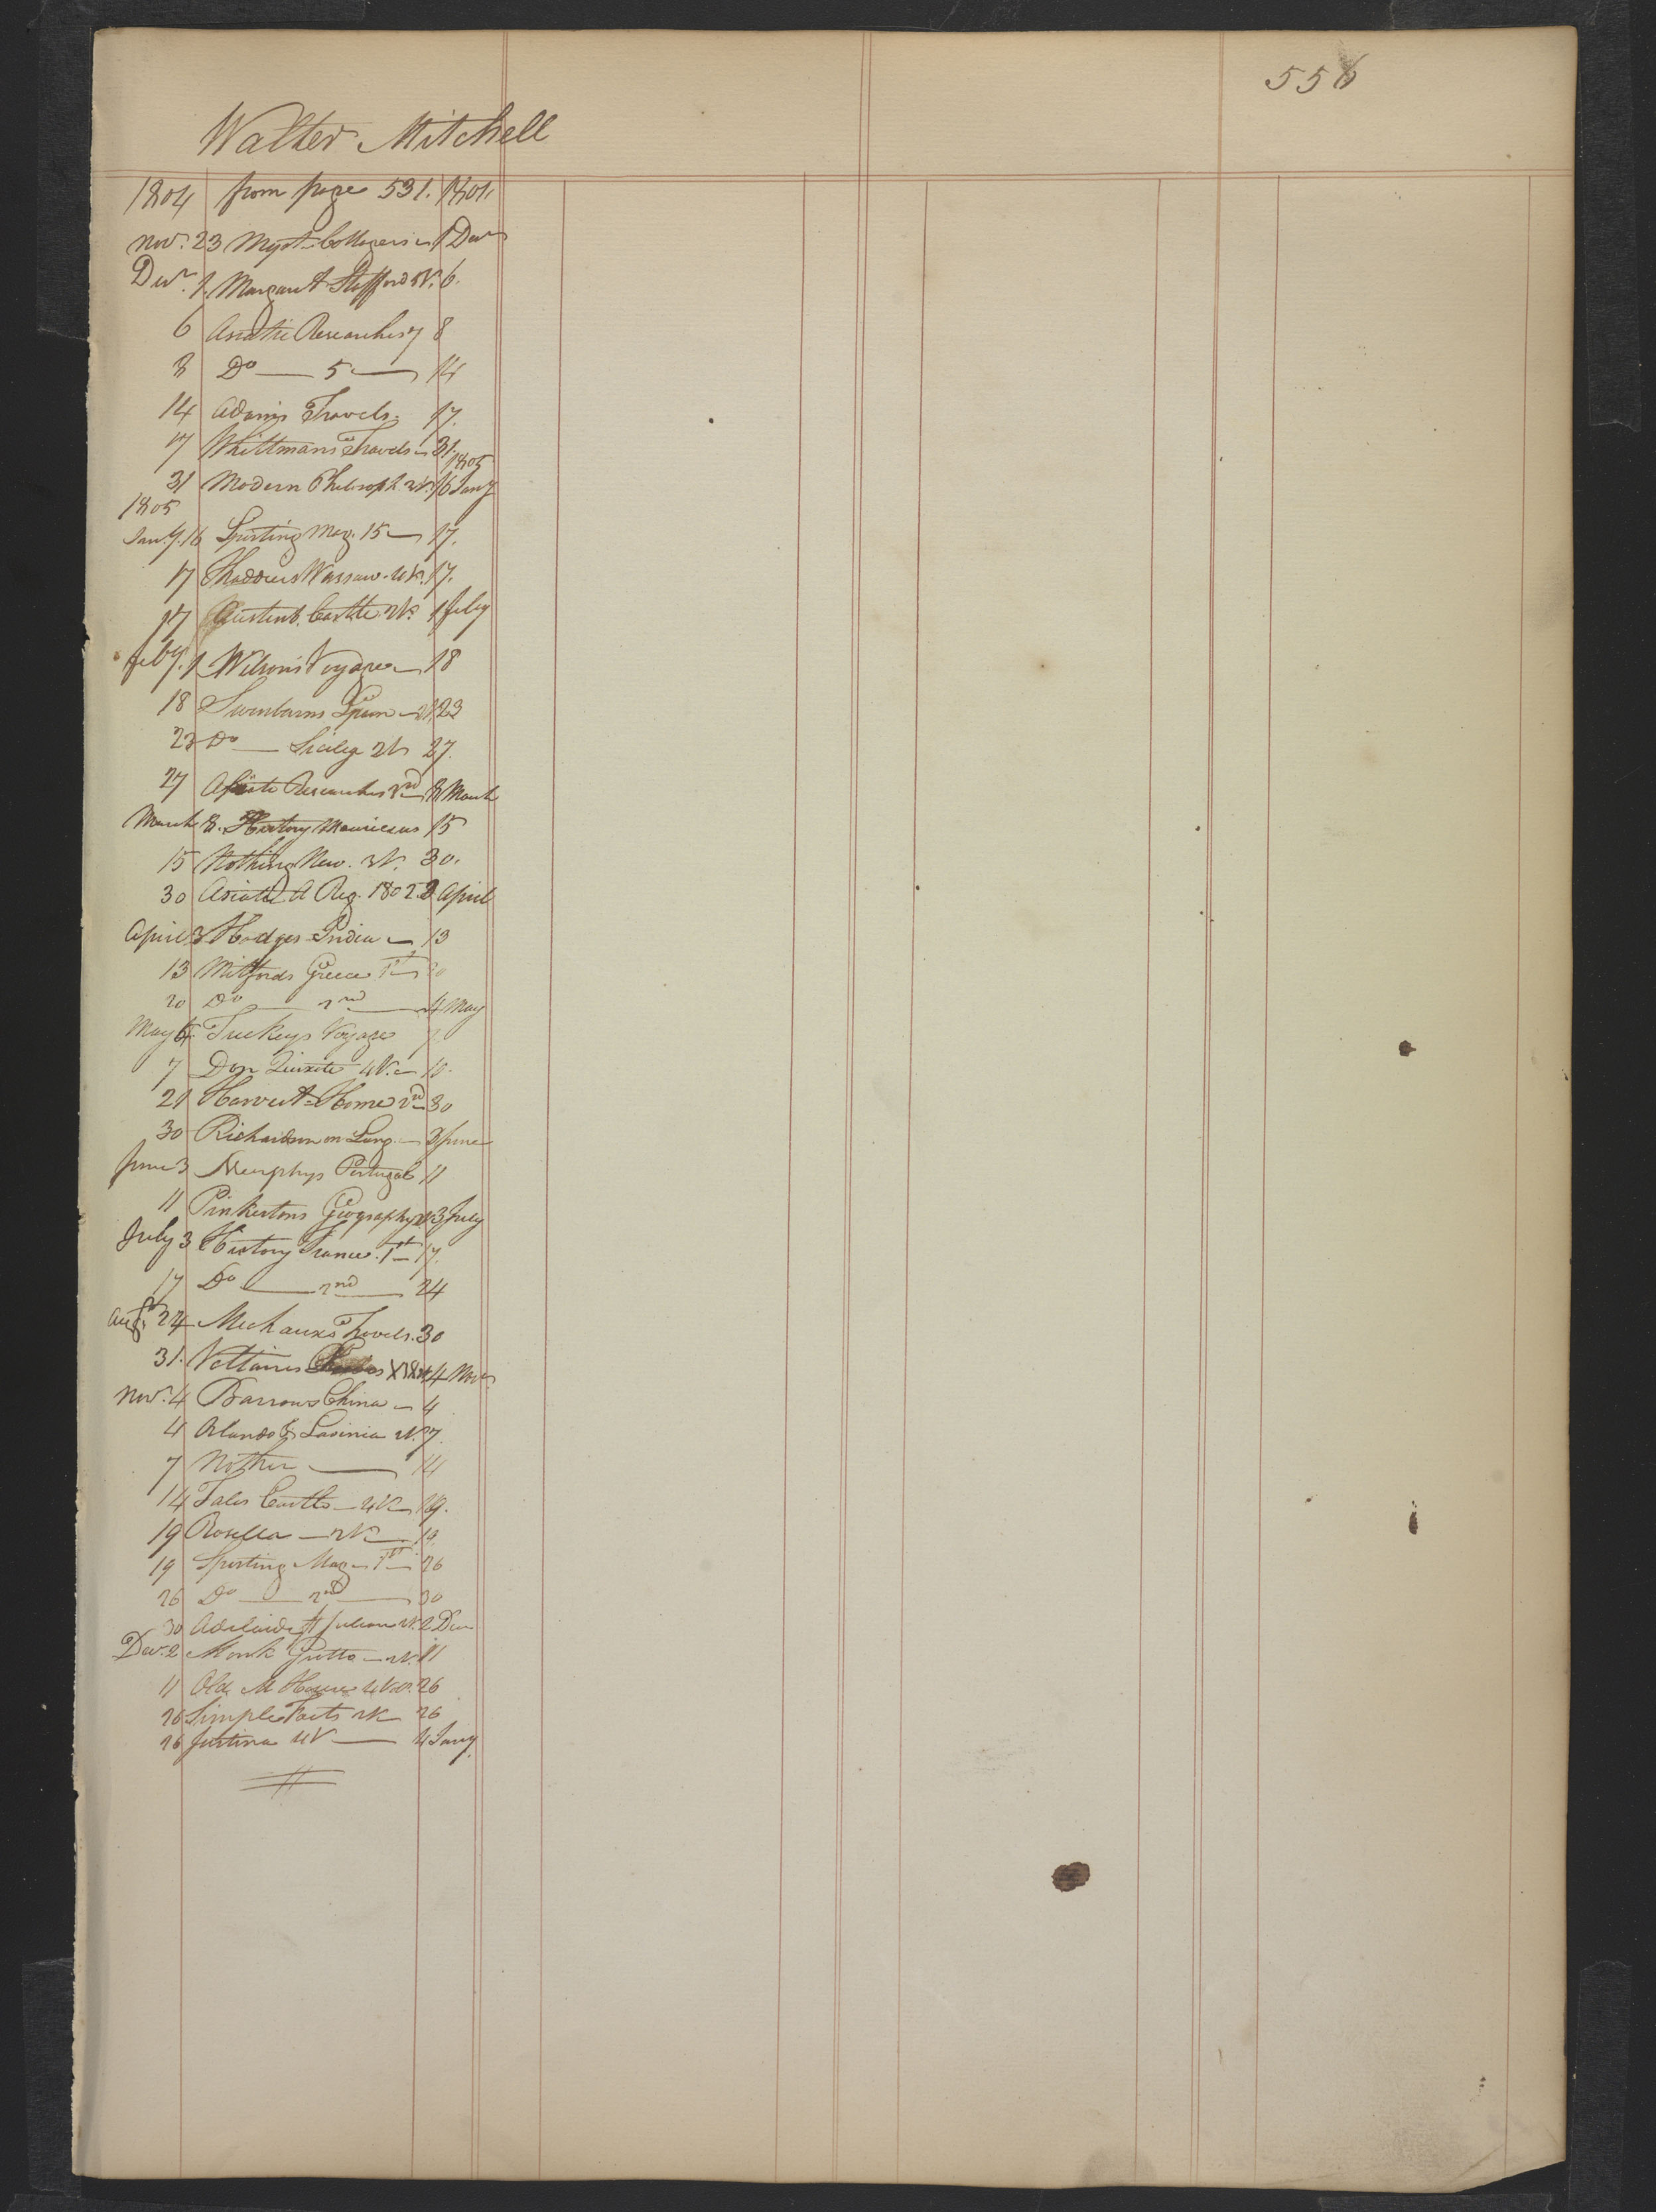 556
Walter Mitchell
1804 from page 531. 1804
Novr. 23 Myst. Cottagers 1 Decr
Decr. 1. Margaret Stafford 2V. 6.
6 Asiatic Researches 7 8
8 Do — 5 — 14
14 Adams Travels. 17.
17 Whittmans Travels 31.
1805
31 Modern Philosoph. 2V. 16 Jany
1805
Jany. 16 Sporting Mag. 15 — 17.
17 Thaddeus Warsaw. 4V. 17.
17 Castle 2V. 1 feby
feby. 1 Wilson's Voyage — 18
18 Swinburns Spain — 2V. 23
23 Do — Sicily 2V 27.
27 Asiatic Researches 3rd 8 March
March 8. History Mauricaus 15
15 Nothing New. 3V. 30.
30 Asiatic A Reg. 1802. 3 April
April 3 Hodges India — 13
13 Mitfords Greece 1st 20
20 Do — 2nd — 4 May
May 4 Tuckeys Voyage 7
7 Don Quixote 4V. — 10.
21 Harvest Home 2nd 30
30 Richardson on Lang. — 3 June
June 3 Murphys Portugal 11
11 Pinkertons Geography 2V 3 July
July 3 History France. 1st 17.
17 Do — 2nd — 24
Augt. 24 Mechauxs Travels. 30
31. Voltaires 4 Novr
Novr. 4 Barrows China — 4
4 Orlando & Lavinia 4V. 7.
7 Mother — 14
14 Tales Castle — 4V — 19.
19 Rosella — 2V — 19.
19 Sporting Mag — 1st — 26
26 Do — 2nd — 30
30 Adelaide St Julian 2V. 2 Decr
Decr. 2 Monk Grotto — 2V. 11
11 Old M House 4V. 26
26 Simple Facts 2V 26
26 Justina 4V — 4 Jany.